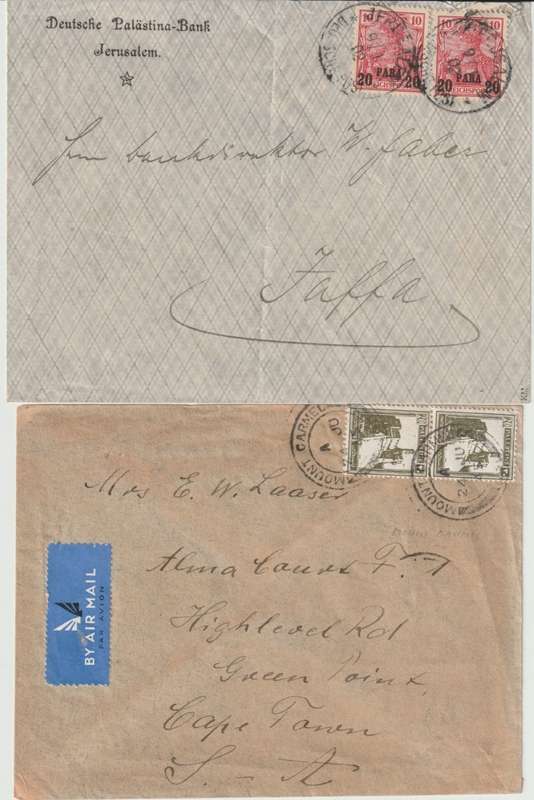 Deutsche Palästina-Bank
Jerusalem.
10 10
20 PARA 20
REICHSPOST
10 10
20 PARA 20
REICHSPOST
Herrn Bankdirektor W. Faber
Jaffa
MOUNT CARMEL
PALESTINE
PALESTINE
MOUNT CARMEL
Mrs E. W. Laaser
Alma Court F. 7
Highlevel Rd
Green Point
Cape Town
S - A
BY AIR MAIL
PAR AVION